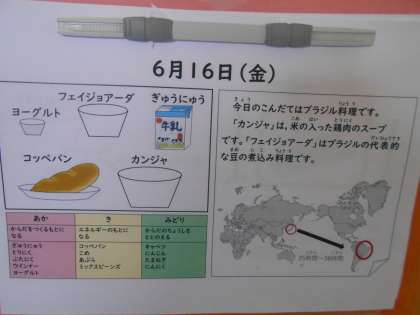 6月16日(金)
フェイジョアーダ
ぎゅうにゅう
ヨーグルト
牛乳
コッペパン
カンジャ
あか
き
みどり
からだをつくるもとに
なる
エネルギーのもとに
なる
からだのちょうしを
ととのえる
ぎゅうにゅう
とりにく
ぶたにく
ウインナー
ヨーグルト
コッペパン
こめ
あぶら
ミックスビーンズ
キャベツ
にんじん
たまねぎ
にんにく
今日のこんだてはブラジル料理です。
「カンジャ」は、米の入った鶏肉のスープ
です。「フェイジョアーダ」はブラジルの代表的
な豆の煮込み料理です。